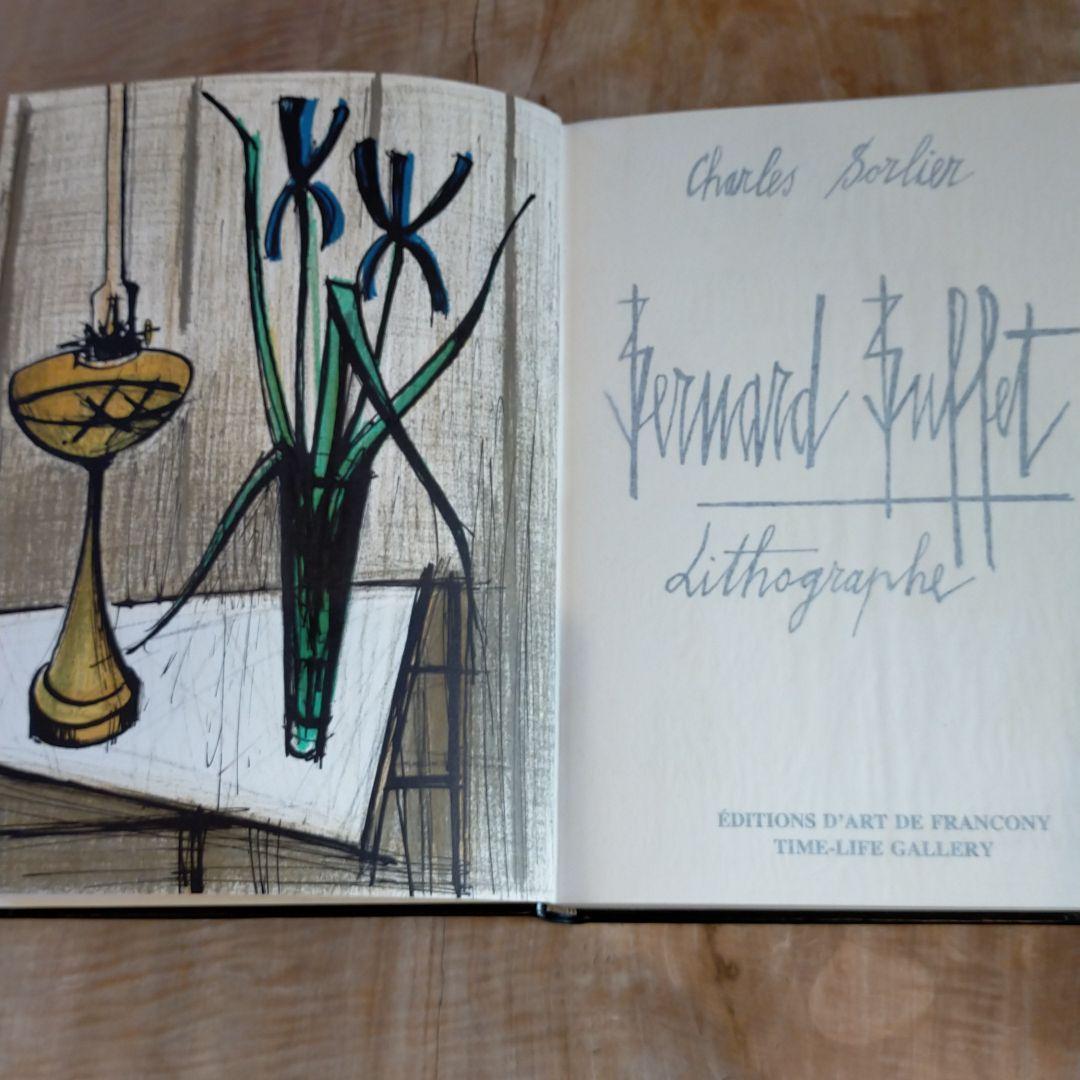 Charles Sorlier
Bernard Buffet
Lithographe
ÉDITIONS D'ART DE FRANCONY
TIME-LIFE GALLERY